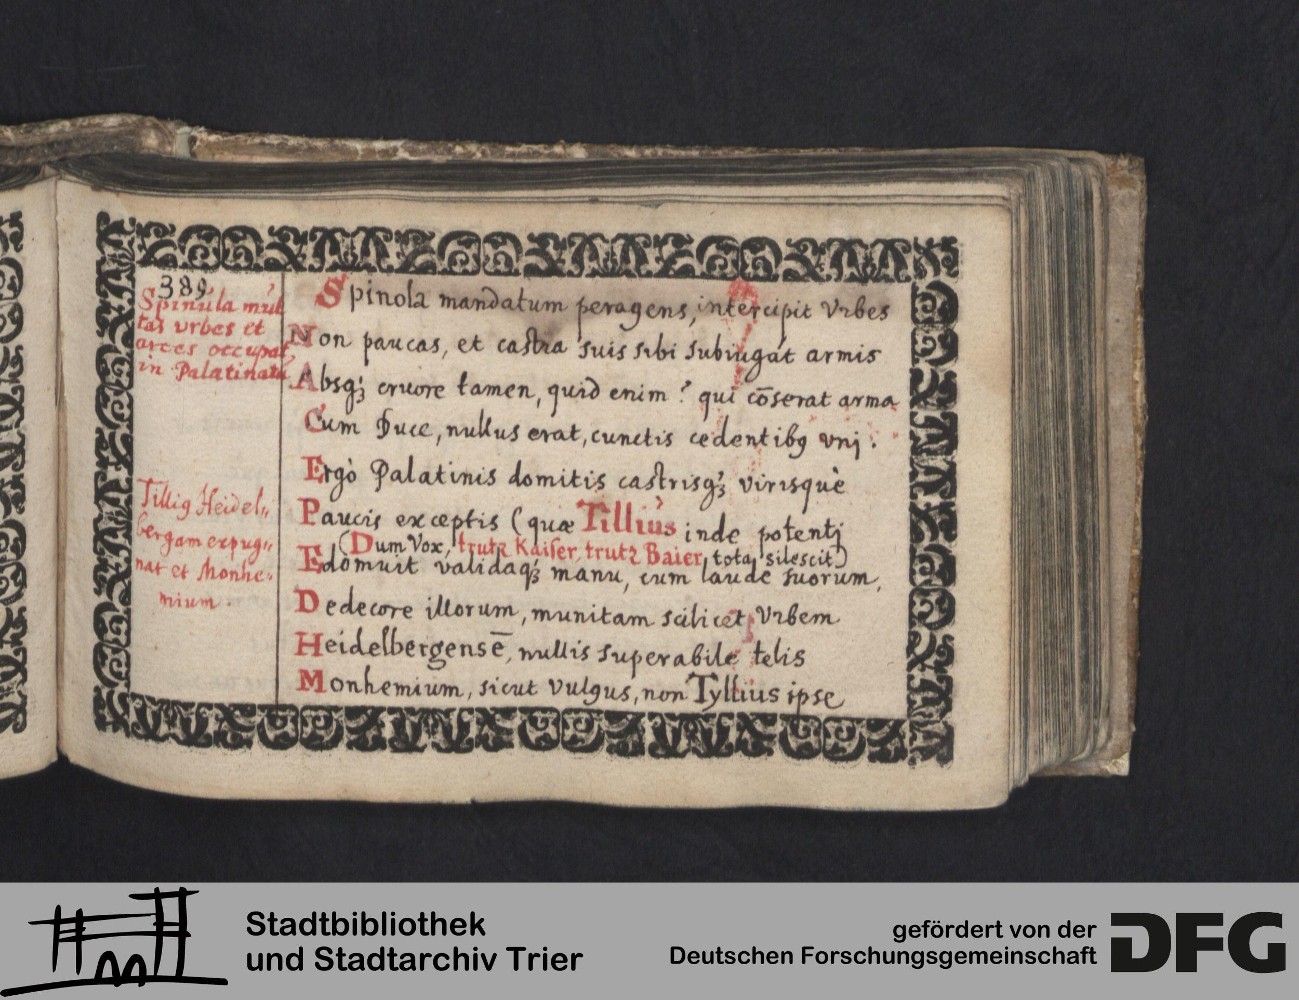 389
Spinula mul
tas vrbes et
arces occupat,
in Palatinatu
Tillig Heidel„
bergam expug„
nat et Monhe„
mium.
Spinola mandatum peragens, intercipit Vrbes
Non paucas, et castra suis sibi subiugat armis
Absqꝫ cruore tamen, quid enim? qui cōserat arma
Cum Duce, nullus erat, cunctis cedentibꝰ vnj.
Ergò Palatinis domitis castrisqꝫ virisquè
Paucis exceptis (quæ Tillius inde potentj
(Dum Vox, trutz Kaiser, trutz Baier, tota silescit)
Edomuit validaqꝫ manu, cum laude suorum,
Dedecore illorum, munitam scilicet Vrbem
Heidelbergensē, nullis superabile telis
Monhemium, sicut Vulgus, non Tyllius ipse
Stadtbibliothek
und Stadtarchiv Trier
gefördert von der
Deutschen Forschungsgemeinschaft
DFG